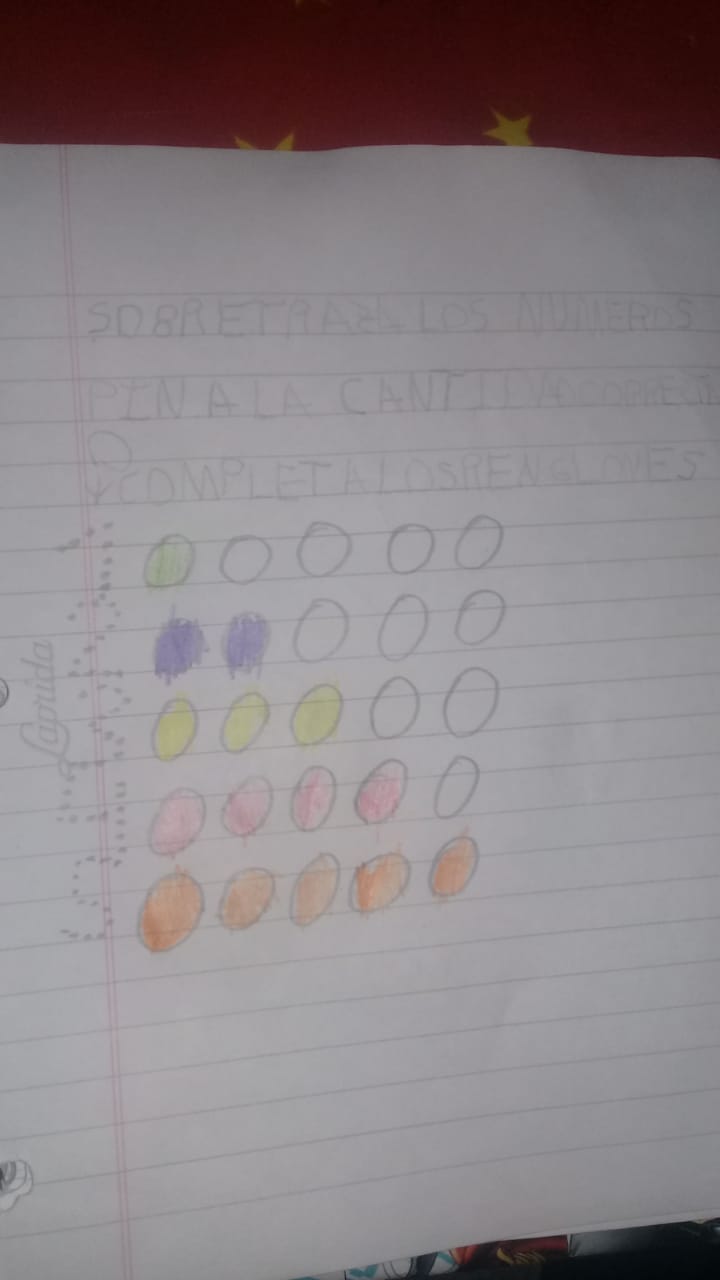 SOBRETRAZA LOS NUMEROS
PINALA CANTIDAD CORRECTA
Y COMPLETALOSRENGLONES
1
2
3
4
5
Laprida